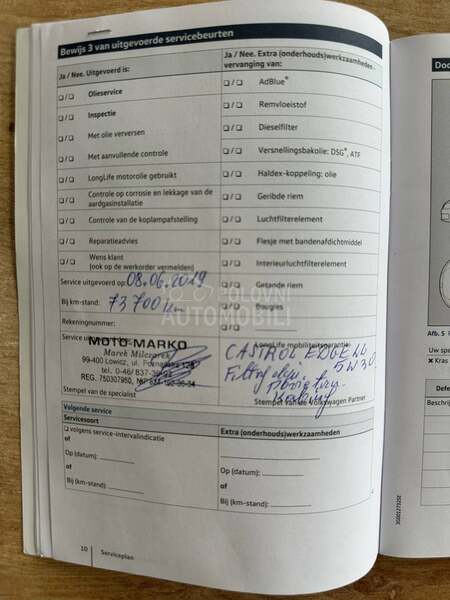 Bewijs 3 van uitgevoerde servicebeurten
Ja / Nee. Uitgevoerd is:
❏ / ❏ Olieservice
❏ / ❏ Inspectie
❏ / ❏ Met olie verversen
❏ / ❏ Met aanvullende controle
❏ / ❏ LongLife motorolie gebruikt
❏ / ❏ Controle op corrosie en lekkage van de
aardgasinstallatie
❏ / ❏ Controle van de koplampafstelling
❏ / ❏ Reparatieadvies
❏ / ❏ Wens klant
(ook op de werkorder vermelden)
Ja / Nee. Extra (onderhouds)werkzaamheden -
vervanging van:
❏ / ❏ AdBlue®
❏ / ❏ Remvloeistof
❏ / ❏ Dieselfilter
❏ / ❏ Versnellingsbakolie: DSG®, ATF
❏ / ❏ Haldex-koppeling: olie
❏ / ❏ Geribde riem
❏ / ❏ Luchtfilterelement
❏ / ❏ Flesje met bandenafdichtmiddel
❏ / ❏ Interieurluchtfilterelement
❏ / ❏ Getande riem
❏ / ❏ Bougies
❏ / ❏
Service uitgevoerd op: 08.06.2019
Bij km-stand: 73 700 km
Rekeningnummer:
POLOVNI
AUTOMOBILI
Service
MOTO MARKO
Marek Milczarek
99-400 Lowicz, ul. Poznańska
tel. 0-46/ 837-
REG. 750307980, NIP
Stempel van de specialist
LongLife mobiliteitsgarantie:
CASTROL EDGE LL
5W30
Stempel van de Volkswagen Partner
Volgende service
Servicesoort
❏ volgens service-intervalindicatie
of
Op (datum):
of
Bij (km-stand):
Extra (onderhouds)werkzaamheden
Op (datum):
of
Bij (km-stand):
10 Serviceplan
Doo
Afb. 5
Uw spe
Kras
Defe
Beschrij